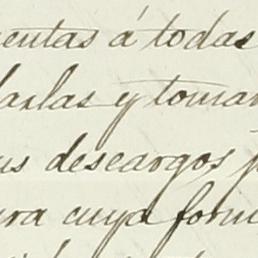 uentas á todas
darlas y tomar
us descargos p
ura cuya form